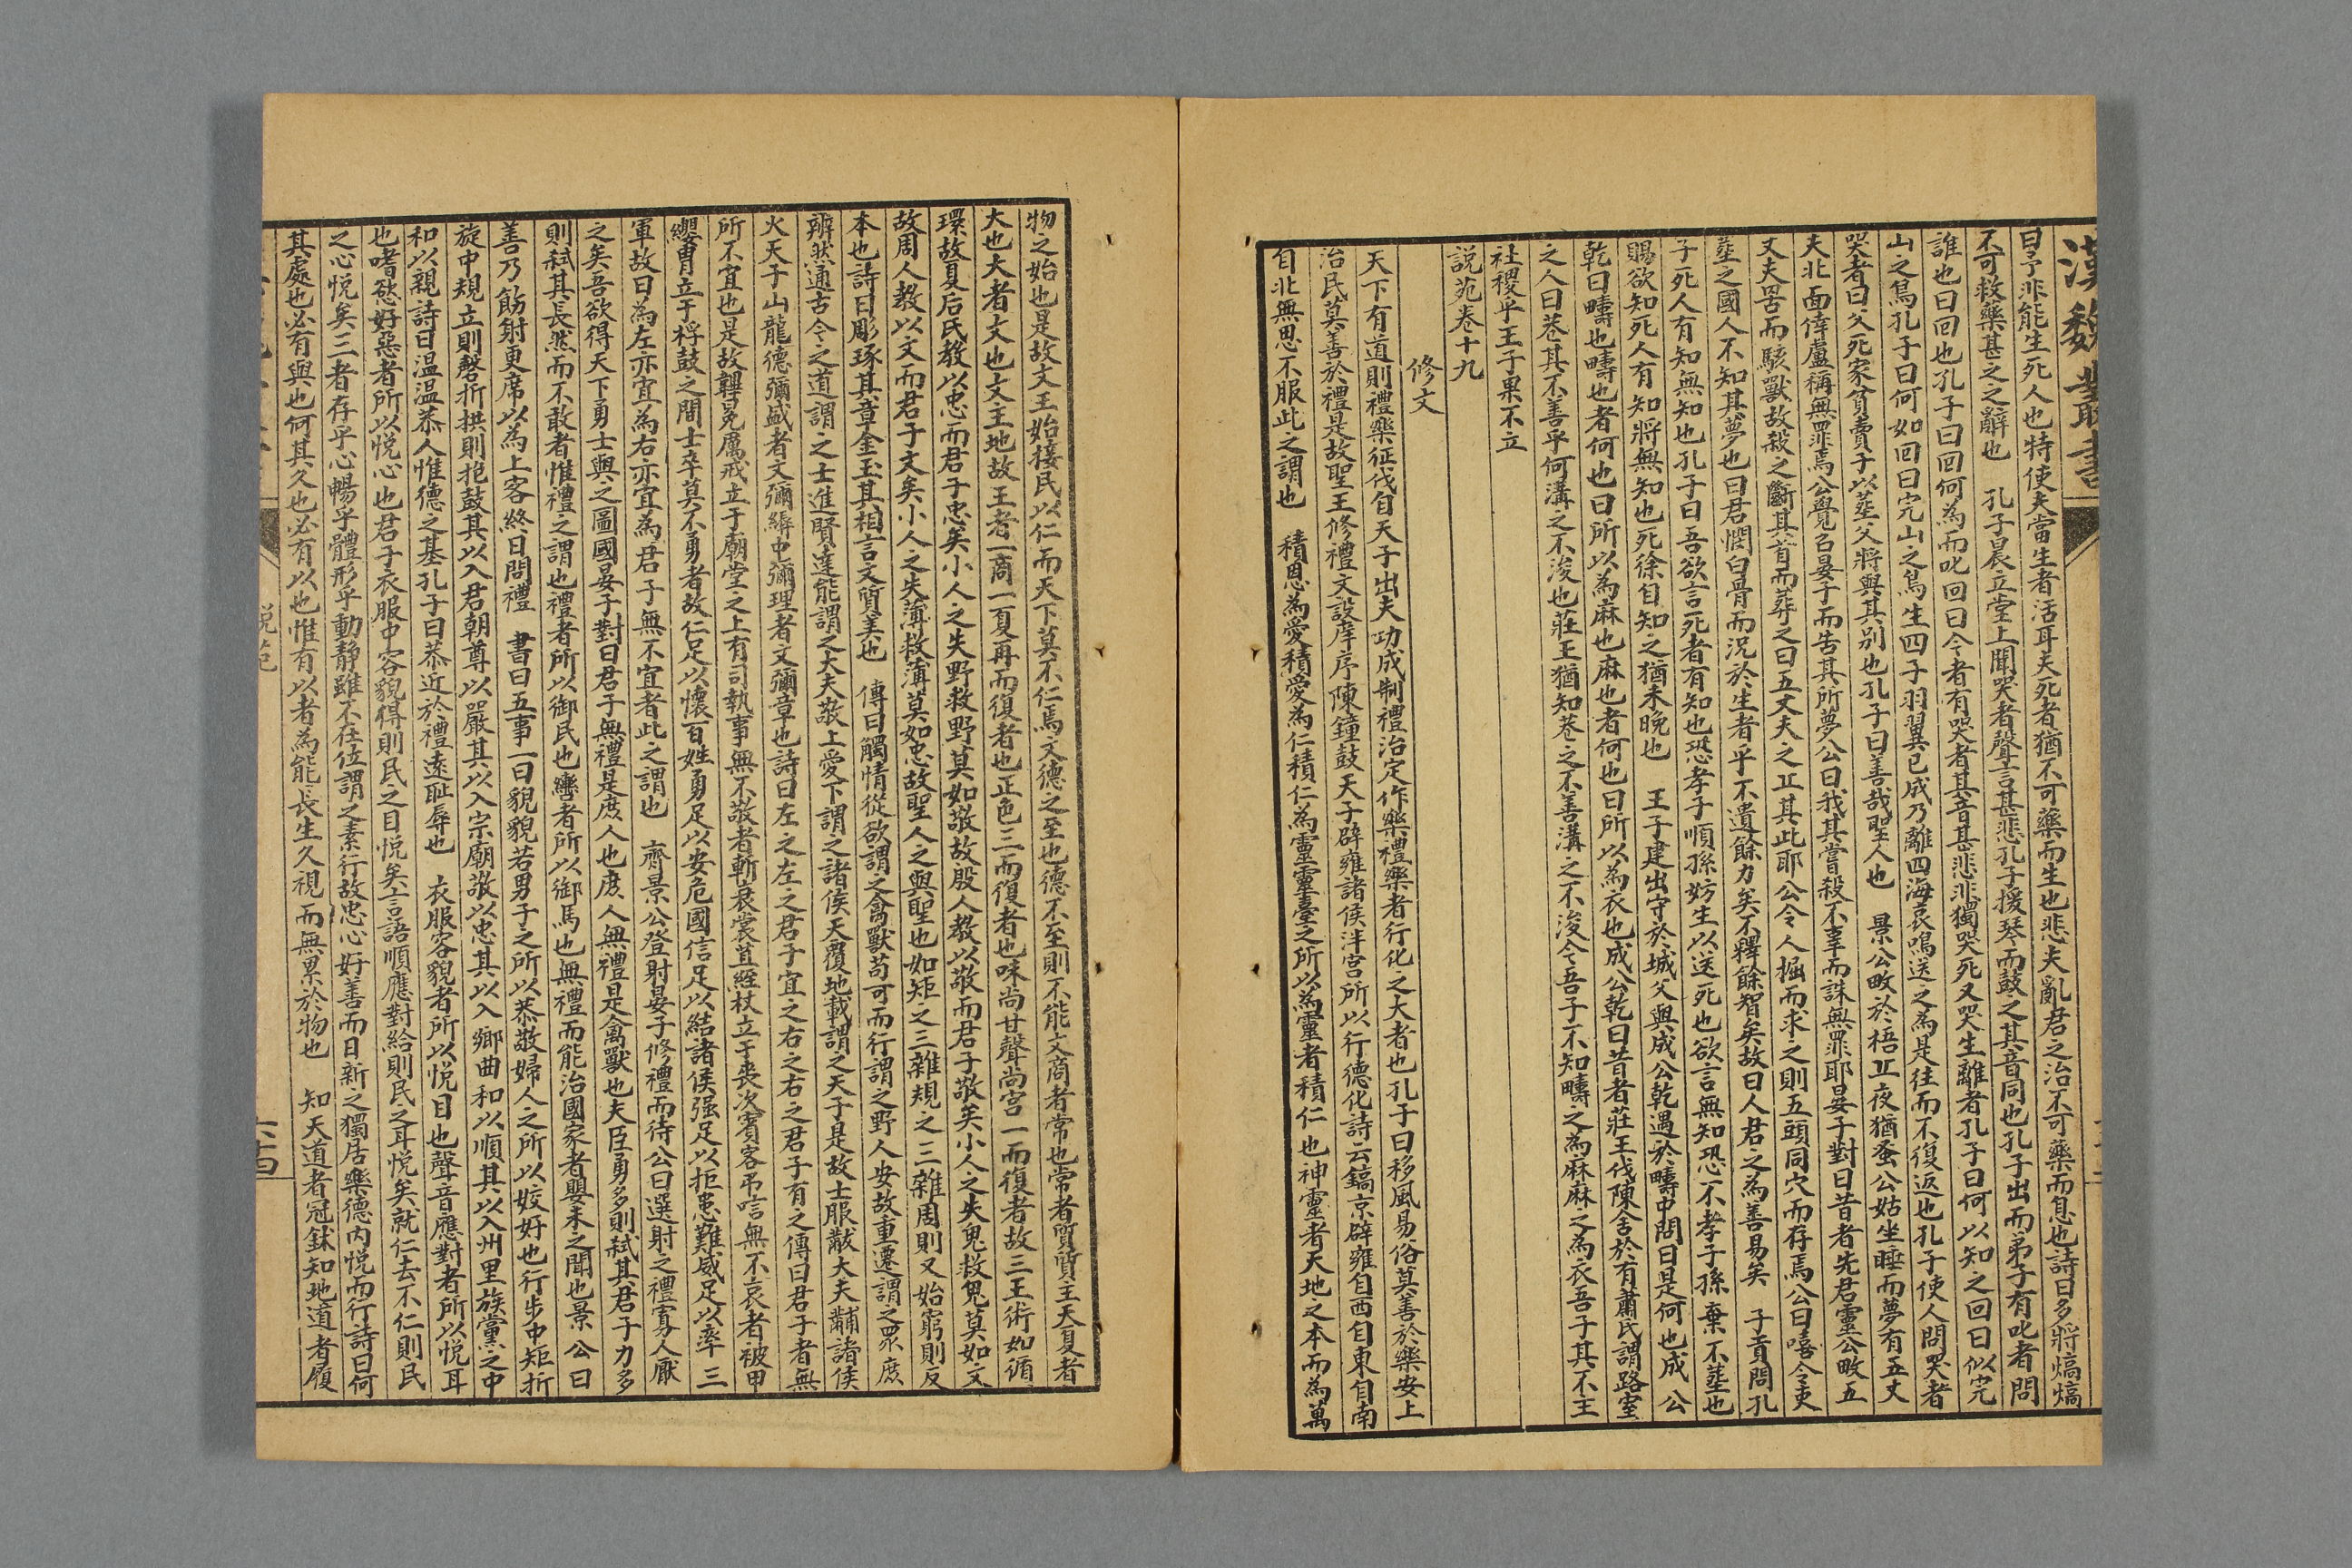 漢魏叢書
曰予非能生死人也特使夫當生者活耳夫死者猶不可藥而生也悲夫亂君之治不可藥而息也詩曰多將熇熇
不可救藥甚之之辭也　孔子晨立堂上聞哭者聲音甚悲孔子援琴而鼓之其音同也孔子出而弟子有叱者問
誰也曰回也孔子曰回何為而叱回曰今者有哭者其音甚悲非獨哭死又哭生離者孔子曰何以知之回曰似完
山之鳥孔子曰何如回曰完山之鳥生四子羽翼已成乃離四海哀鳴送之為是往而不復返也孔子使人問哭者
哭者曰父死家貧賣子以葬父將與其別也孔子曰善哉聖人也　景公畋於梧丘夜猶蚤公姑坐睡而夢有五丈
夫北面倖盧稱無罪焉公覺召晏子而告其所夢公曰我其嘗殺不辜而誅無罪耶晏子對曰昔者先君靈公畋五
丈夫罟而駭獸故殺之斷其首而葬之曰五丈夫之丘其此耶公令人掘而求之則五頭同穴而存焉公曰嘻令吏
葬之國人不知其夢也曰君憫白骨而況於生者乎不遺餘力矣不釋餘智矣故曰人君之為善易矣　子貢問孔
子死人有知無知也孔子曰吾欲言死者有知也恐孝子順孫妨生以送死也欲言無知恐不孝子孫棄不葬也
賜欲知死人有知將無知也死徐自知之猶未晚也　王子建出守於城父與成公乾遇於疇中問曰是何也成公
乾曰疇也疇也者何也曰所以為麻也麻也者何也曰所以為衣也成公乾曰昔者莊王伐陳舍於有蕭氏謂路室
之人曰巷其不善乎何溝之不浚也莊王猶知巷之不善溝之不浚今吾子不知疇之為麻麻之為衣吾子其不主
社稷乎王子果不立
説苑卷十九
修文
天下有道則禮樂征伐自天子出夫功成制禮治定作樂禮樂者行化之大者也孔子曰移風易俗莫善於樂安上
治民莫善於禮是故聖王修禮文設庠序陳鐘鼓天子辟雍諸侯泮宮所以行德化詩云鎬京辟雍自西自東自南
自北無思不服此之謂也　積恩為愛積愛為仁積仁為靈靈臺之所以為靈者積仁也神靈者天地之本而為萬
物之始也是故文王始接民以仁而天下莫不仁焉文德之至也德不至則不能文商者常也常者質質主天夏者
大也大者文也文王地故王者一商一夏再而復者也正色三而復者也味尚甘聲尚宮一而復者故三王術如循
環故夏后氏教以忠而君子忠矣小人之失野救野莫如敬故殷人教以敬而君子敬矣小人之失鬼救鬼莫如文
故周人教以文而君子文矣小人之失薄救薄莫如忠故聖人之與聖也如矩之三雜規之三雜周則又始窮則反
本也詩曰彫琢其章金玉其相言文質美也　傳曰觸情從欲謂之禽獸苟可而行謂之野人安故重遷謂之眾庶
辨然通古今之道謂之士進賢達能謂之大夫敬上愛下謂之諸侯天覆地載謂之天子是故士服黻大夫黼諸侯
火天子山龍德彌盛者文彌縟中彌理者文彌章也詩曰左之左之君子宜之右之右之君子有之傳曰君子者無
所不宜也是故韠冕厲戒立于廟堂之上有司執事無不敬者斬衰裳苴絰杖立于喪次賓客弔唁無不哀者被甲
纓胄立于桴鼓之間士卒莫不勇者故仁足以懷百姓勇足以安危國信足以結諸侯强足以拒患難威足以率三
軍故曰為左亦宜為右亦宜為君子無不宜者此之謂也　齊景公登射晏子修禮而待公曰選射之禮寡人厭
之矣吾欲得天下勇士與之圖國晏子對曰君子無禮是庶人也庶人無禮是禽獸也夫臣勇多則弒其君子力多
則弒其長然而不敢者惟禮之謂也禮者所以御民也轡者所以御馬也無禮而能治國家者嬰未之聞也景公曰
善乃飭射更席以為上客終日問禮　書曰五事一曰貌貌若男子之所以恭敬婦人之所以姣好也行步中矩折
旋中規立則磬折拱則抱鼓其以入君朝尊以嚴其以入宗廟敬以忠其以入鄉曲和以順其以入州里族黨之中
和以親詩曰温温恭人惟德之基孔子曰恭近於禮遠恥辱也　衣服容貌者所以悦目也聲音應對者所以悦耳
也嗜慾好惡者所以悦心也君子衣服中容貌得則民之目悦矣言語順應對給則民之耳悦矣就仁去不仁則民
之心悦矣三者存乎心暢乎體形乎動静雖不在位謂之素行故忠心好善而日新之獨居樂德内悦而行詩曰何
其處也必有與也何其久也必有以也惟有以者為能長生久視而無累於物也　知天道者冠鉥知地道者履